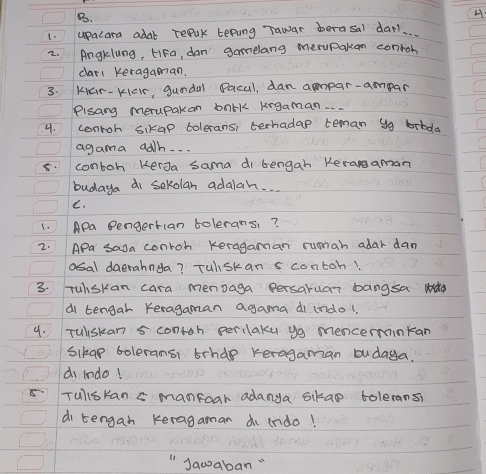 B.
1. upacara adat Tepuk Tepung Tawar berasal dari...
2. Angklung, tifa, dan gamelang merupakan contoh
dari keragaman.
3. Kicir-kicir, gundul Pacul, dan ampar-ampar
Pisang merupakan bntk krgaman...
4. contoh sikap toleransi terhadap teman yg brbda
agama adlh...
5. contoh kerja sama di tengah keragaman
budaya di sekolah adalah...
C.
1. Apa pengertian toleransi?
2. Apa saja contoh keragaman rumah adat dan
asal daerahnya? Tuliskan 5 contoh!
3. Tuliskan cara menjaga persatuan bangsa
di tengah keragaman agama di indo!.
4. Tuliskan 5 contoh perilaku yg mencerminkan
sikap toleransi trhdp keragaman budaya.
di indo!
5 Tuliskan 5 manfaat adanya sikap toleransi
di tengah keragaman di indo!
"Jawaban"
4.